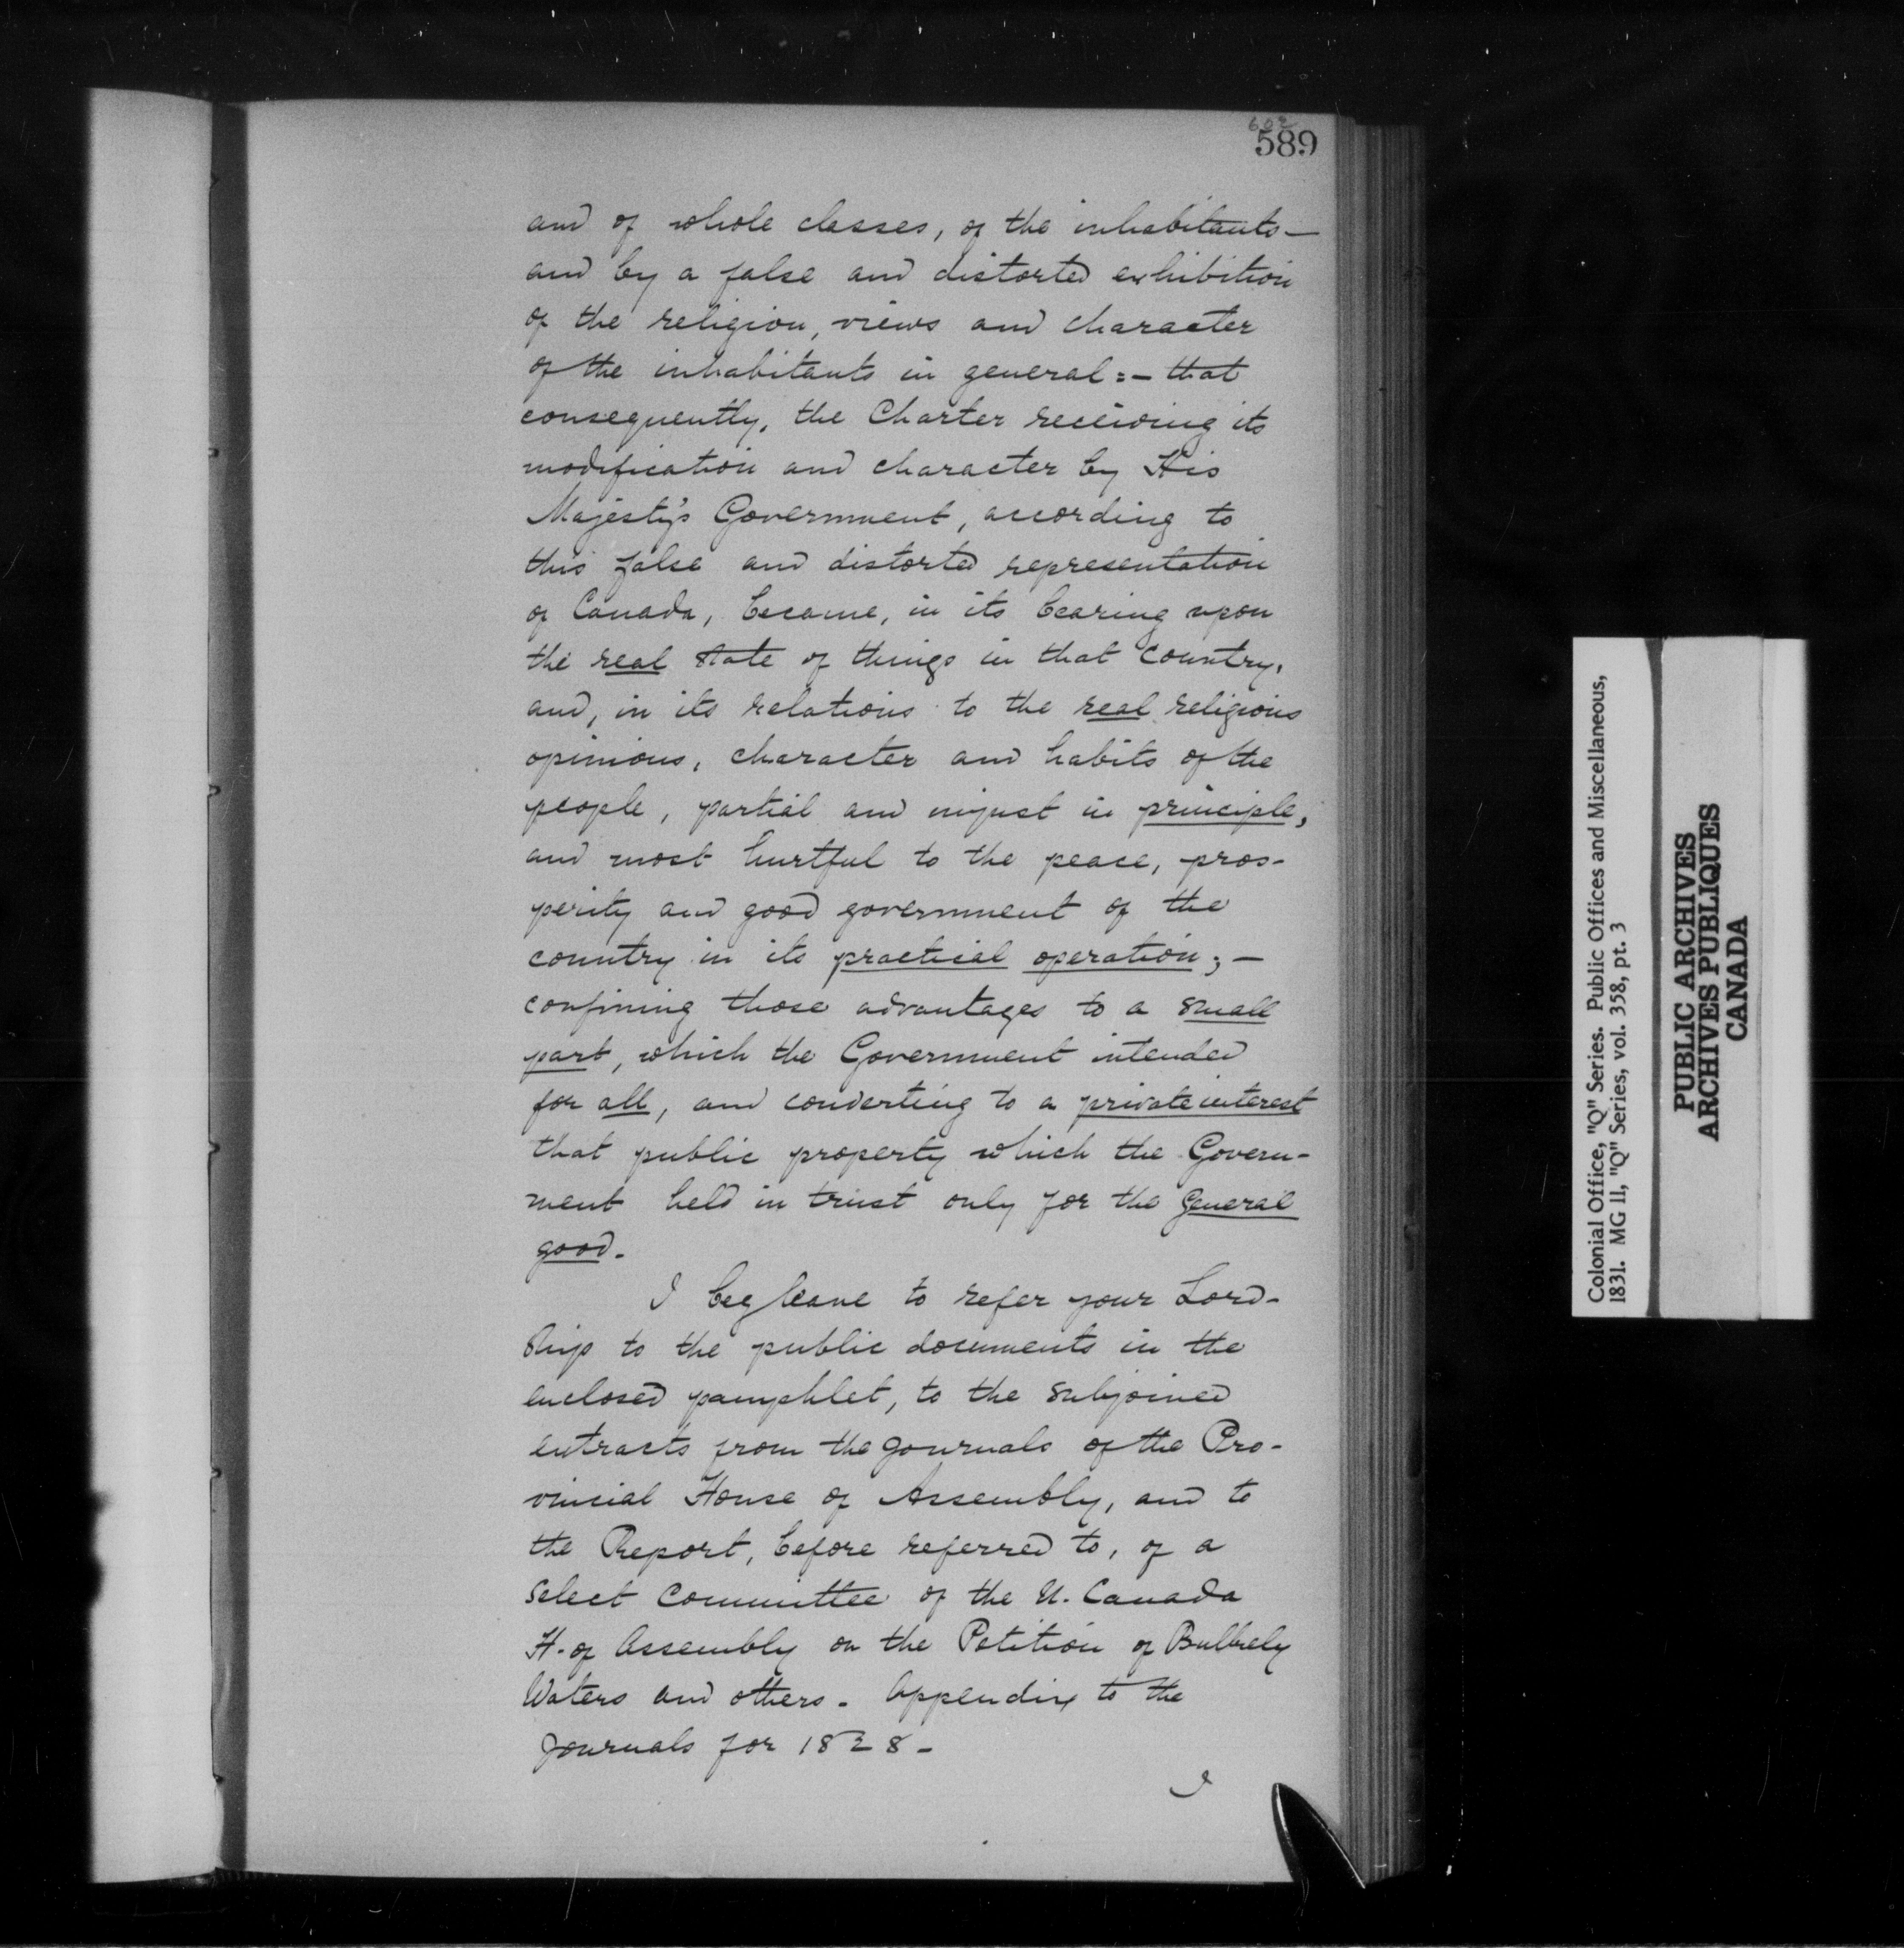 602
589
and of whole classes, of the inhabitants—
and by a false and distorted exhibition
of the religion, views and character
of the inhabitants in general:— that
consequently, the Charter receiving its
modification and character by His
Majesty's Government, according to
this false and distorted representation
of Canada, became, in its bearing upon
the real state of things in that country,
and, in its relations to the real religious
opinions, character and habits of the
people, partial and unjust in principle,
and most hurtful to the peace, pros-
perity and good government of the
country in its practical operation;—
confining those advantages to a small
part, which the Government intended
for all, and converting to a private interest
that public property which the Govern-
ment held in trust only for the general
good.
I beg leave to refer your Lord-
ship to the public documents in the
enclosed pamphlet, to the subjoined
extracts from the Journals of the Pro-
vincial House of Assembly, and to
the Report, before referred to, of a
Select Committee of the U. Canada
H. of Assembly on the Petition of
Waters and others. Appendix to the
Journals for 1828—
I
Colonial Office, "Q" Series. Public Offices and Miscellaneous,
1831. MG 11, "Q" Series, vol. 358, pt. 3
PUBLIC ARCHIVES
ARCHIVES PUBLIQUES
CANADA